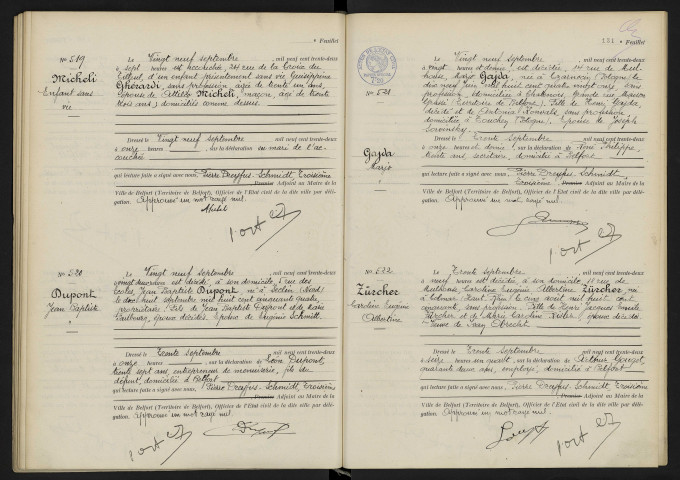 Feuillet
N° 519
Micheli
Enfant sans
vie
Le Vingt neuf septembre mil neuf cent trente-deux
à sept heures est accouchée, 24 rue de la Croix du
Tilleul, d'un enfant présentement sans vie Guiseppina
Ghérardi, sans profession, âgée de trente un ans,
épouse de Micheli, maçon, âgé de trente
trois ans, domiciliés comme dessus.
Dressé le Vingt neuf septembre mil neuf cent trente-deux
à onze heures, sur la déclaration du mari de l'ac-
couchée
qui lecture faite a signé avec nous, Pierre Dreyfus-Schmidt, Troisième
Premier Adjoint au Maire de la
Ville de Belfort (Territoire de Belfort), Officier de l'Etat civil de la dite ville par délé-
gation. Approuvé un mot rayé nul.
N° 520
Dupont
Jean Baptiste
Le Vingt neuf septembre mil neuf cent trente-deux
est décédé, à son domicile, rue des
Ecoles, Jean Baptiste Dupont né à Seclin (Nord)
le douze septembre mil huit cent cinquante quatre,
propriétaire. Fils de Jean Baptiste Dupont et de
époux décédés. Epoux de Virginie Schmitt.
Dressé le Trente septembre mil neuf cent trente-deux
à onze heures, sur la déclaration de Léon Dupont,
trente sept ans, entrepreneur de menuiserie, fils du
défunt, domicilié à Belfort
qui lecture faite a signé avec nous, Pierre Dreyfus-Schmidt, Troisième
Premier Adjoint au Maire de la
Ville de Belfort (Territoire de Belfort), Officier de l'Etat civil de la dite ville par délé-
gation. Approuvé un mot rayé nul.
131 Feuillet
N° 521
Gajda
Marie
Le Vingt neuf septembre mil neuf cent trente-deux
à vingt heures et demie, est décédée, 14 rue de Mul-
house, Marie Gajda, née à (Pologne) le
dix neuf juin mil huit cent quatre vingt onze, sans
profession, domiciliée à Grande rue,
(Territoire de Belfort). Fille de Gajda,
décédé et de sans profession,
domiciliée à (Pologne). Epouse de Joseph
Dressé le Trente septembre mil neuf cent trente-deux
à onze heures et demie, sur la déclaration de René Philippe,
trente ans, secrétaire, domicilié à Belfort
qui lecture faite a signé avec nous, Pierre Dreyfus-Schmidt
Troisième Premier Adjoint au Maire de la
Ville de Belfort (Territoire de Belfort), Officier de l'Etat civil de la dite ville par délé-
gation. Approuvé un mot rayé nul.
N° 522
Zürcher
Caroline Eugénie
Albertine
Le Trente septembre mil neuf cent trente-deux
à neuf heures est décédée, à son domicile, 10 rue de
Mulhouse, Caroline Eugénie Albertine Zürcher, née
à Colmar (Haut Rhin) le cinq août mil huit cent
cinquante, sans profession. Fille de Henri Jacques
Zürcher et de Marie Caroline époux décédés.
Veuve de
Dressé le Trente septembre mil neuf cent trente-deux
à seize heures un quart, sur la déclaration de Arthur
quarante deux ans, employé, domicilié à Belfort
qui lecture faite a signé avec nous, Pierre Dreyfus-Schmidt, Troisième
Premier Adjoint au Maire de la
Ville de Belfort (Territoire de Belfort), Officier de l'Etat civil de la dite ville par délé-
gation. Approuvé un mot rayé nul.